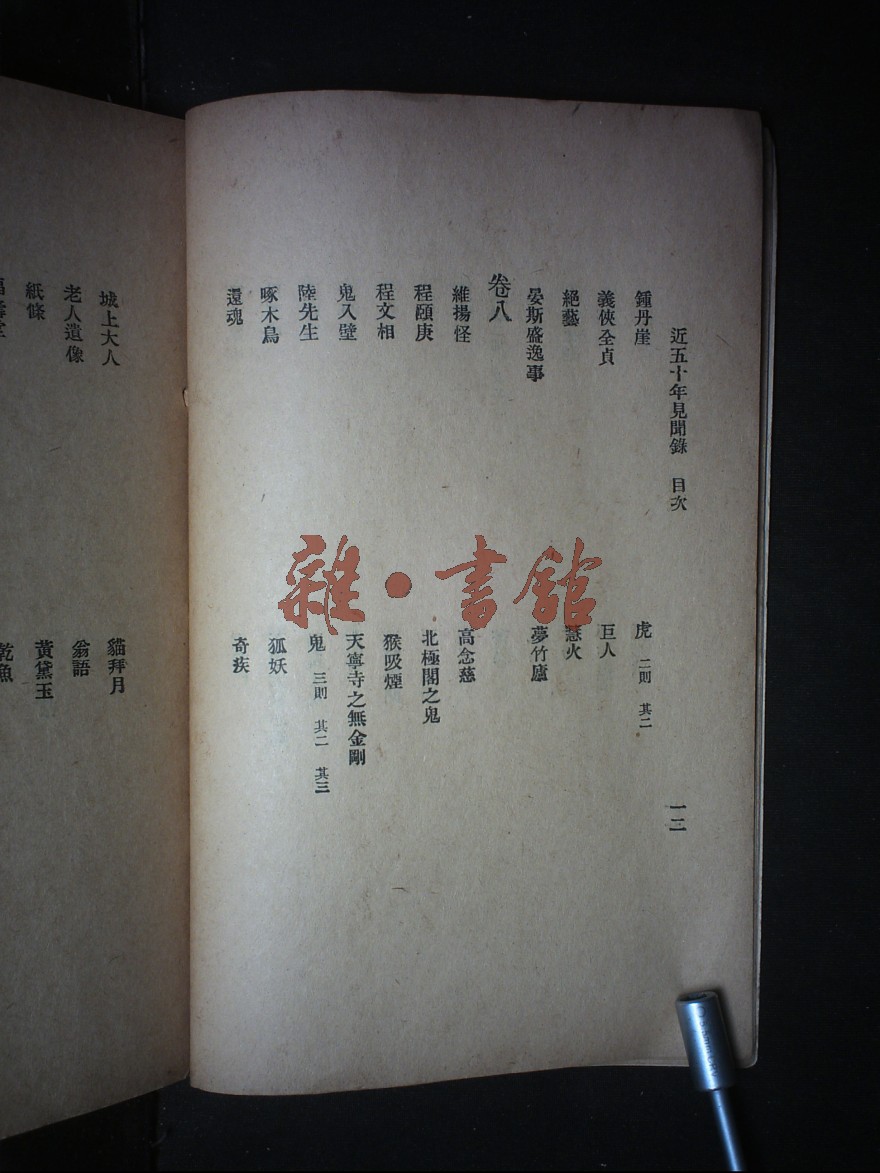 近五十年見聞錄 目次 一二
鍾丹崖
虎 二則 其二
義俠全貞
巨人
絕藝
慧火
晏斯盛逸事
夢竹廬
卷八
維揚怪
高念慈
程頤庚
北極閣之鬼
程文相
猴吸煙
鬼入壁
天寧寺之無金剛
陸先生
鬼 三則 其二 其三
啄木鳥
狐妖
還魂
奇疾
城上大人
貓拜月
老人遺像
翁語
紙條
黃黛玉
乾魚
雜·書館